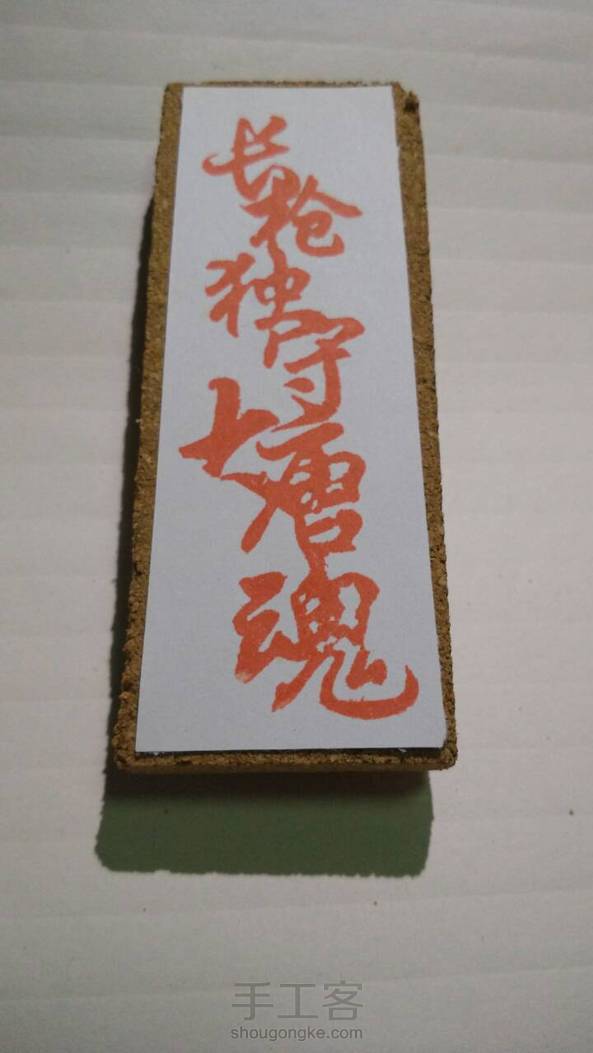 长枪独守大唐魂
手工客
shougongke.com